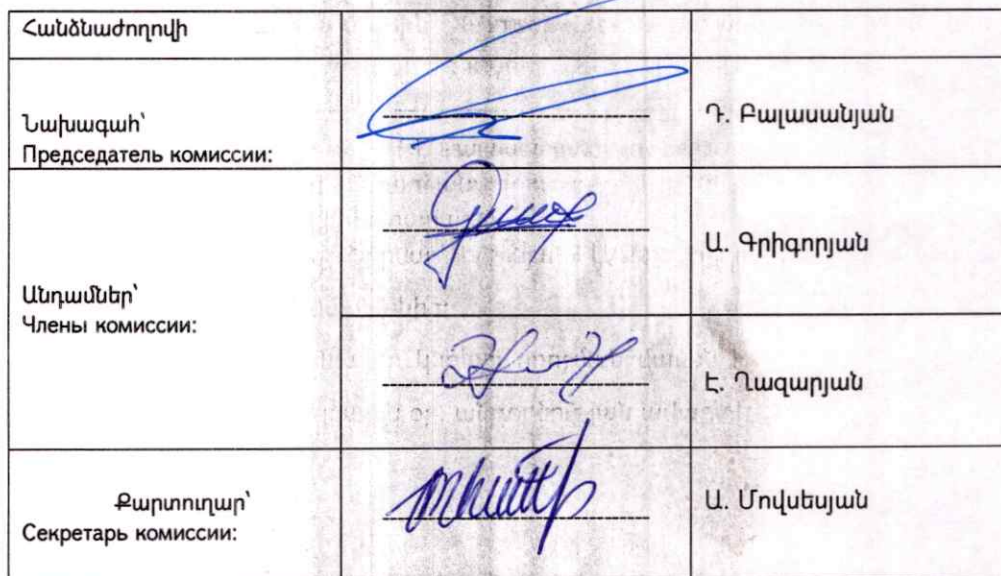 Հանձնաժողովի
Նախագահ՝
Председатель комиссии:
Դ. Բալասանյան
Անդամներ՝
Члены комиссии:
Ա. Գրիգորյան
Է. Ղազարյան
Քարտուղար՝
Секретарь комиссии:
Ա. Մովսեսյան